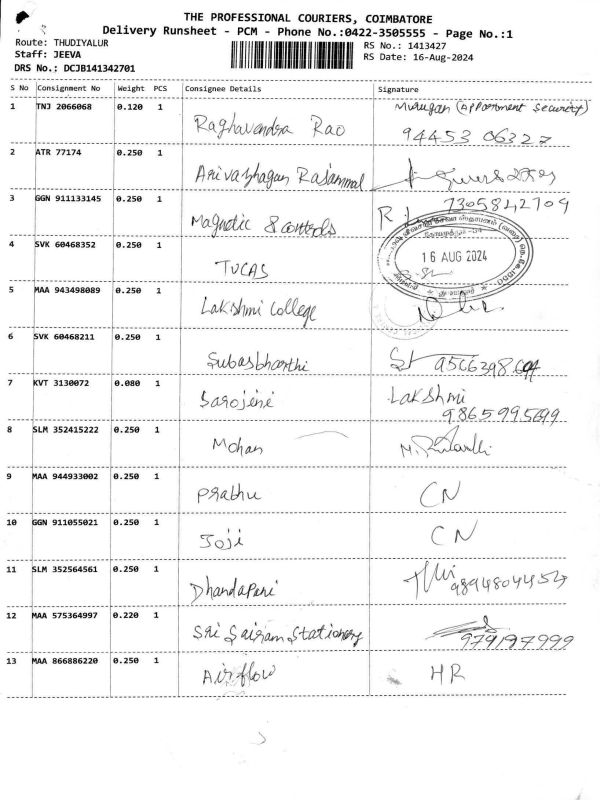 THE PROFESSIONAL COURIERS, COIMBATORE
Delivery Runsheet - PCM - Phone No.:0422-3505555 - Page No.:1
Route: THUDIYALUR
RS No.: 1413427
Staff: JEEVA
RS Date: 16-Aug-2024
DRS No.: DCJB141342701
S No Consignment No Weight PCS Consignee Details Signature
1 TNJ 2066068 0.120 1 Raghavendra Rao Murugan (appartment security)
94453 06327
2 ATR 77174 0.250 1 Arivazhagan Rasammal
3 GGN 911133145 0.250 1 Magnetic & controls 7305842709
4 SVK 60468352 0.250 1 TUCAS 16 AUG 2024
5 MAA 943498089 0.250 1 Lakshmi College
6 SVK 60468211 0.250 1 Subasbharthi
7 KVT 3130072 0.080 1 Sarojini Lakshmi
9865995699
8 SLM 352415222 0.250 1 Mohan
9 MAA 944933002 0.250 1 Prabhu CN
10 GGN 911055021 0.250 1 Joji CN
11 SLM 352564561 0.250 1 Dhandapani
12 MAA 575364997 0.220 1 Sri Sairam Stationery 979197999
13 MAA 866886220 0.250 1 Airflow HR